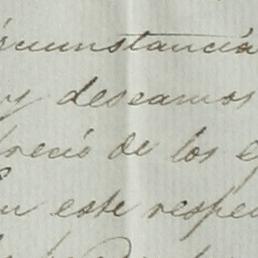 rcunstancia
y deseamos
recio de los
este respec